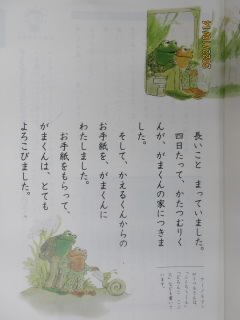 長いこと まっていました。
四日たって、かたつむりく
んが、がまくんの家につきま
した。
そして、かえるくんからの
お手紙を、がまくんに
わたしました。
お手紙をもらって、
がまくんは、とても
よろこびました。